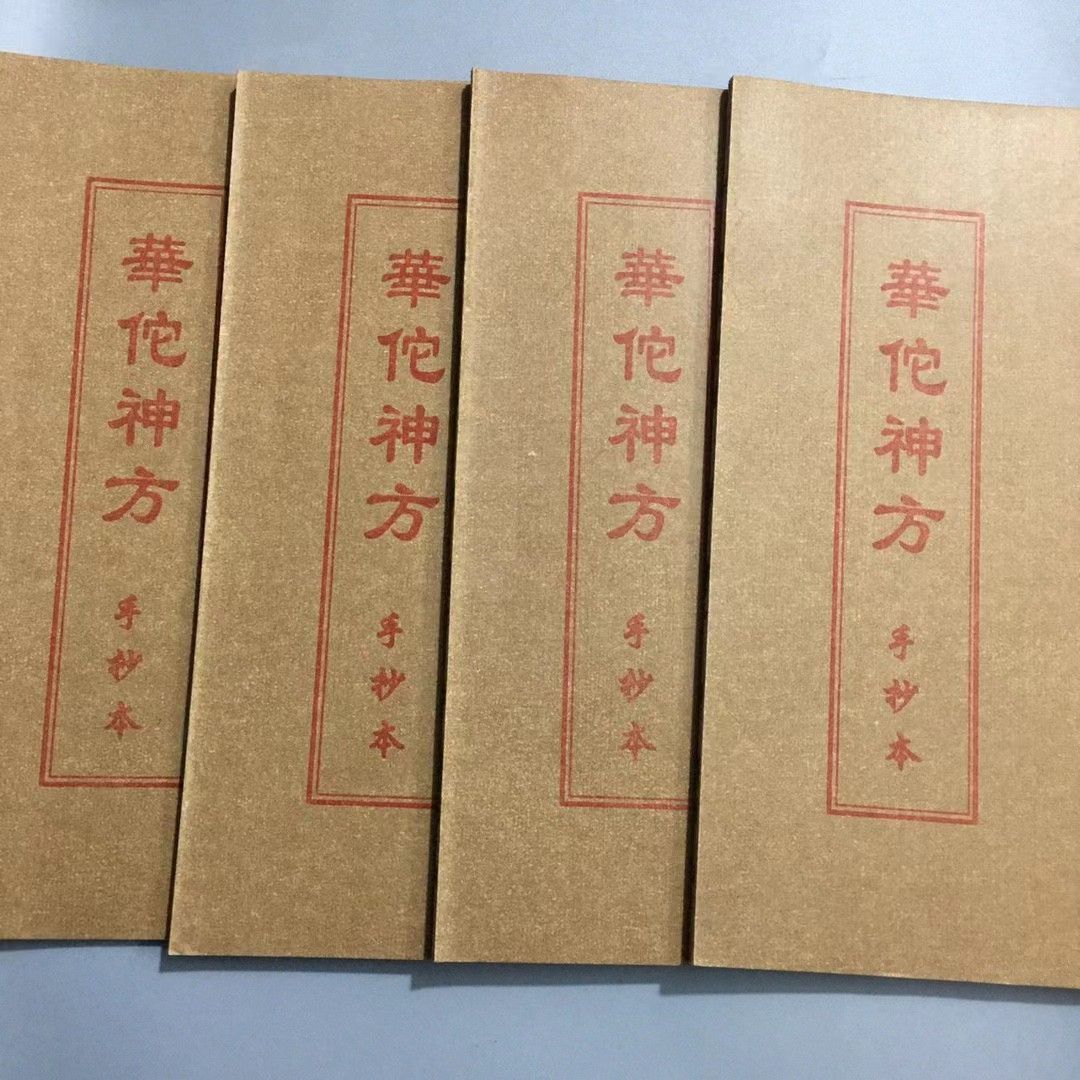 華佗神方
手抄本
華佗神方
手抄本
華佗神方
手抄本
華佗神方
手抄本